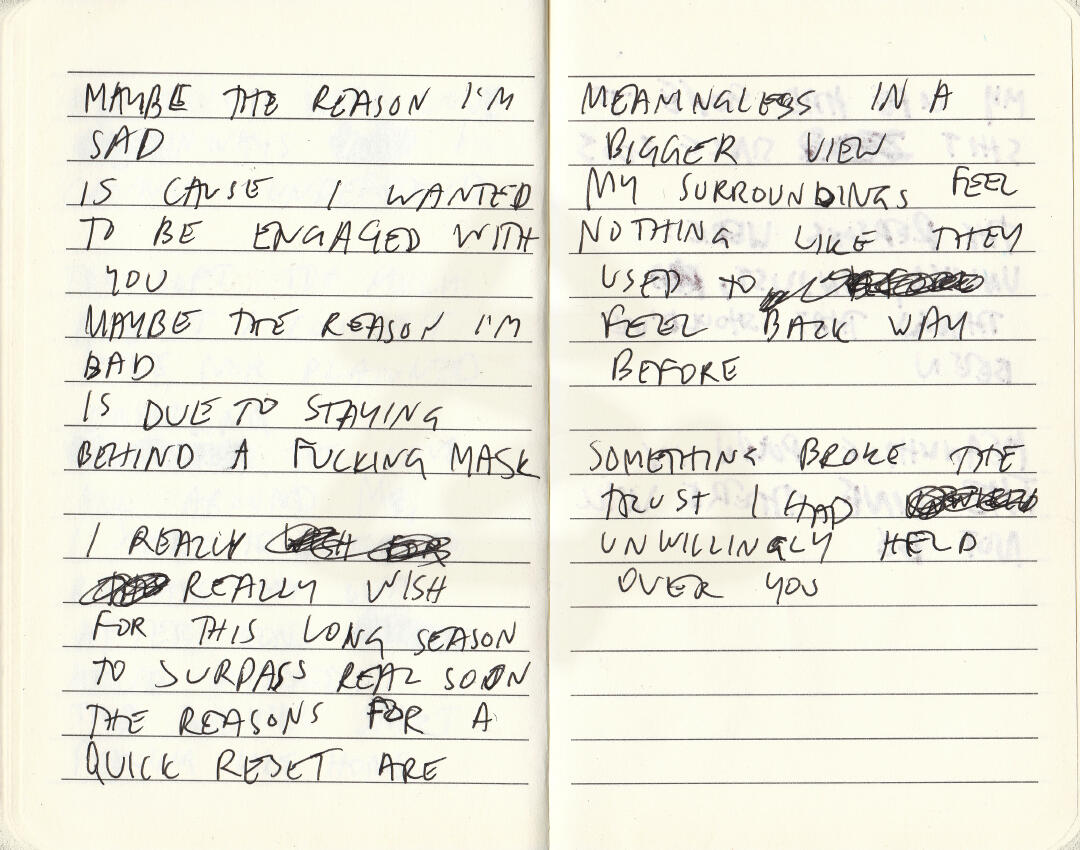 MAYBE THE REASON I'M
SAD
IS CAUSE I WANTED
TO BE ENGAGED WITH
YOU
MAYBE THE REASON I'M
BAD
IS DUE TO STAYING
BEHIND A FUCKING MASK
I REALLY
REALLY WISH
FOR THIS LONG SEASON
TO SURPASS REAL SOON
THE REASONS FOR A
QUICK RESET ARE
MEANINGLESS IN A
BIGGER VIEW
MY SURROUNDINGS FEEL
NOTHING LIKE THEY
USED TO
FEEL BACK WAY
BEFORE
SOMETHING BROKE THE
TRUST I HAD
UNWILLINGLY HELD
OVER YOU